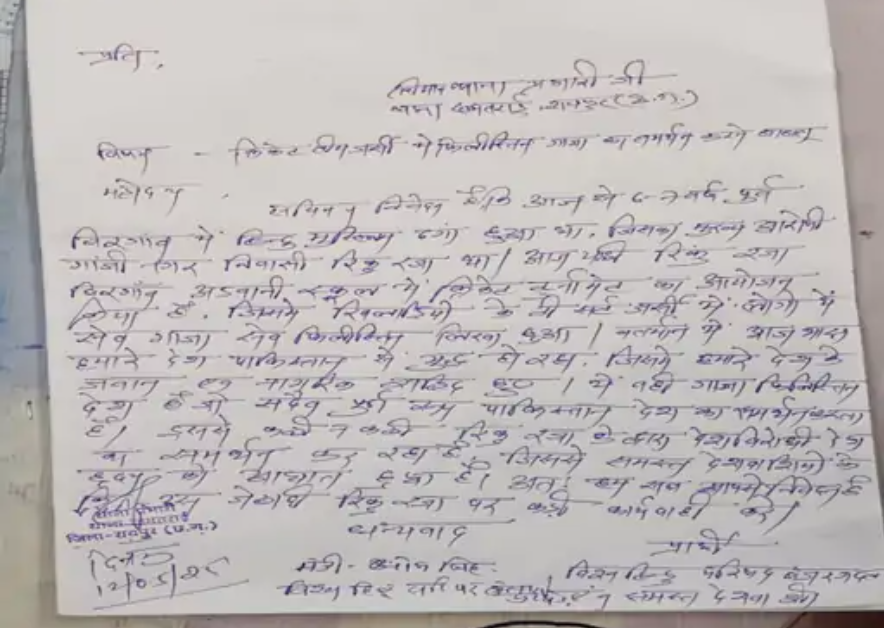 प्रति,
श्रीमान थाना प्रभारी जी
थाना रायपुर (छ.ग.)
विषय - क्रिकेट टीम जर्सी में फिलीस्तिन गाजा का समर्थन करने बाबत्
महोदय,
सविनय निवेदन है कि आज से 6-7 वर्ष पूर्व
बिरगांव में हिन्दु मुस्लिम दंगा हुआ था, जिसका मुख्य आरोपी
गांजी नगर निवासी रिंकु रजा था। आज यही रिंकु रजा
बिरगांव अडवानी स्कूल में क्रिकेट टुर्नामेंट का आयोजन
किया है, जिसमें खिलाडियो के टी शर्ट जर्सी में लोगो में
सेव गाजा सेव फिलीस्तिन लिखा हुआ। वर्तमान में आज भारत
हमारे देश पाकिस्तान से युद्ध हो रहा, जिसमें हमारे देश के
जवान एवं नागरिक शहिद हुए। ये वही गाजा फिलिस्तिन
देश है जो सदैव पाकिस्तान देश का समर्थन करता
है। इससे कही न कही रिंकु रजा के द्वारा देश विरोधी देश
का समर्थन कर रहा है, जिससे समस्त देशवासियो के
हृदय को आघात हुआ है। अतः हम सब आपसे निवेदन है
कि उस जेहादी रिंकु रजा पर कडी कार्यवाही करे।
धन्यवाद
जिला-रायपुर (छ.ग.)
प्रार्थी
दिनांक
12/05/25
मंत्री - सिंह
विश्व हिन्दु परिषद
विश्व हिन्दु परिषद बजरंगदल
एवं समस्त देशवासी